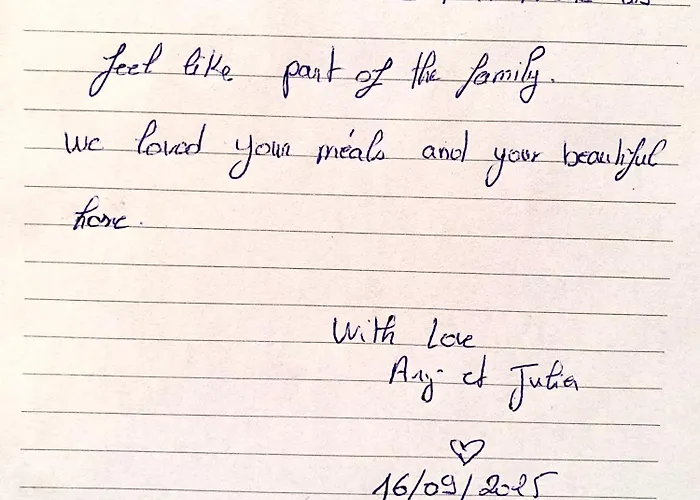 feel like part of the family.
we loved your méals and your beautiful
home.
With Love
Any et Julia
16/09/2025